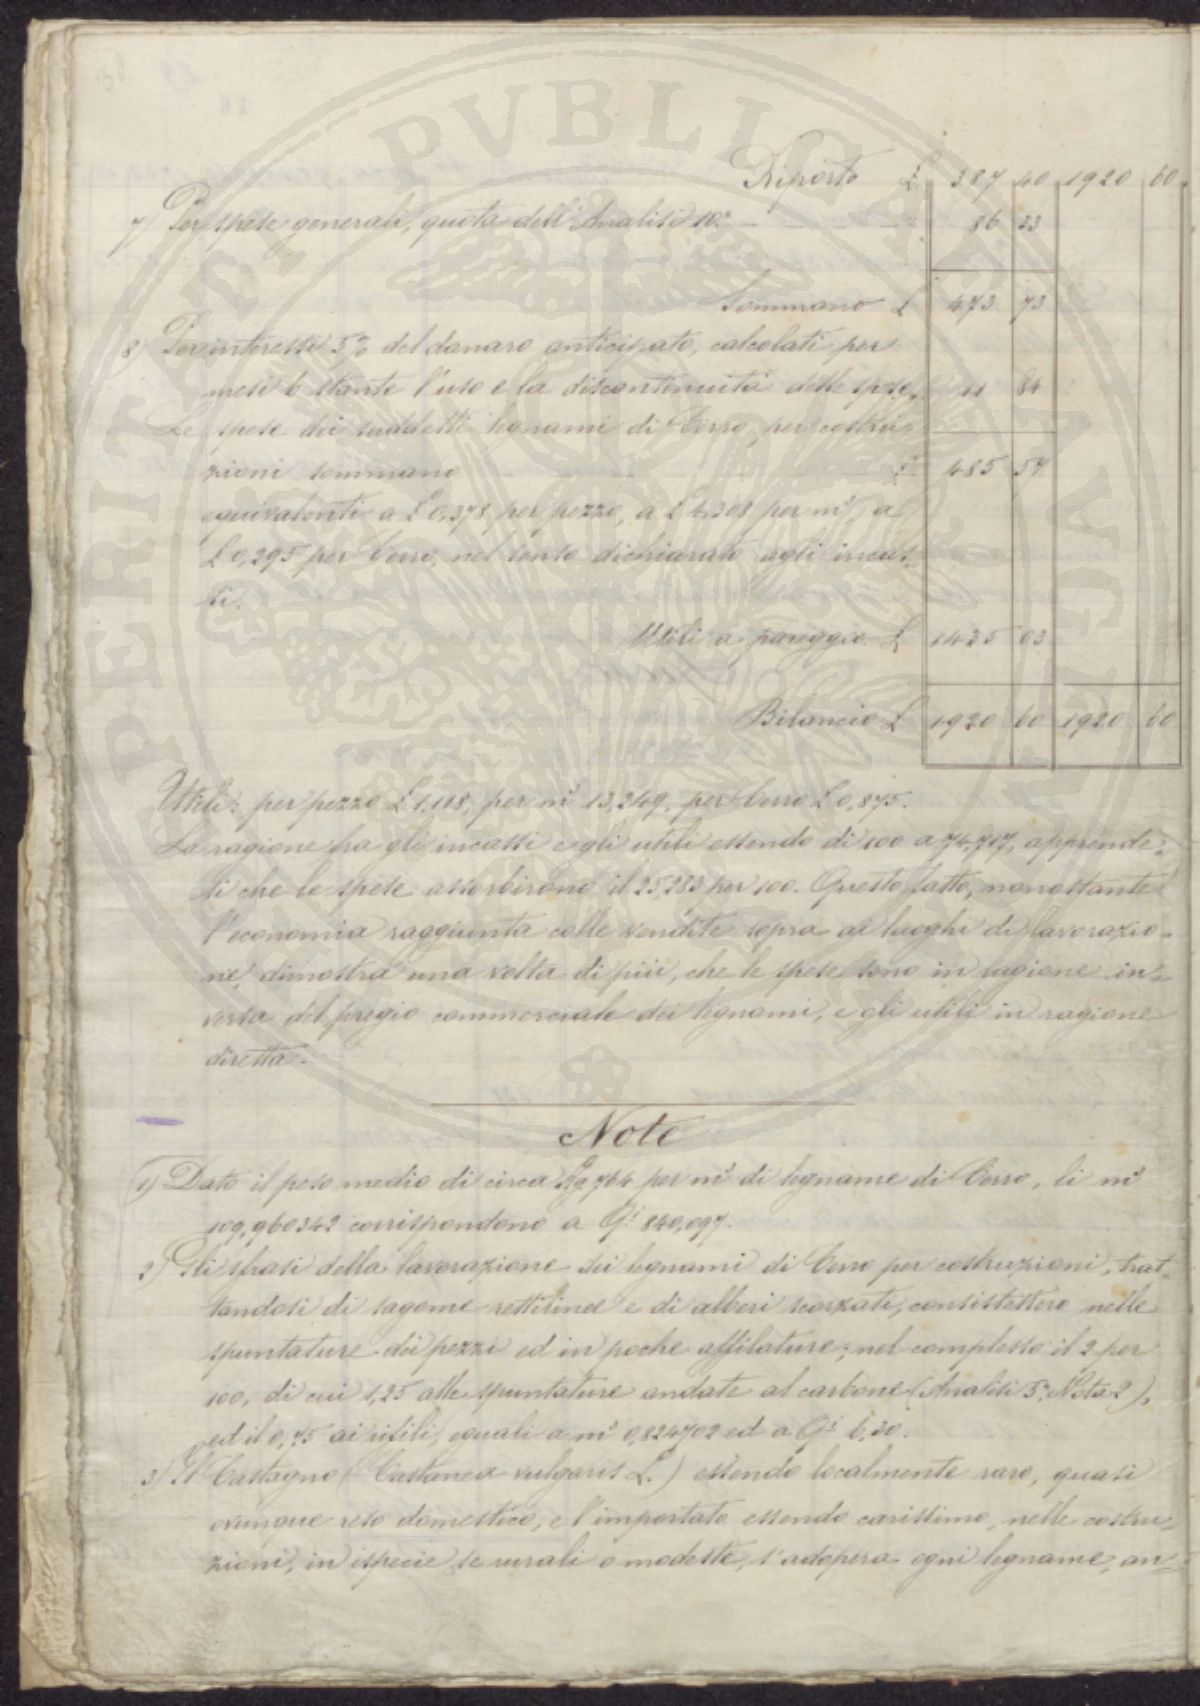 Riporto £ 387 40 1920 60
7) Per spese generali, quota dell'Analisi 10ª " 86 33
Sommano £ 473 73
8) Per interessi 5% del danaro anticipato, calcolati per
mesi 6 stante l'uso e la discontinuità delle spese, " 11 84
Le spese dei suddetti legnami di Cerro, per costru-
zioni sommano £ 485 57
equivalenti a £ 0,378 per pezzo, a £ 4,308 per m³, a
£ 0,295 per Cerro, nel senso dichiarato agli incas-
si.
Utili a pareggio £ 1435 03
Bilancio £ 1920 60 1920 60
Utili: per pezzo £ 1,118, per m³ 13,249, per Cerro £ 0,875.
La ragione fra gli incassi e gli utili essendo di 100 a 74,717, apprende-
si che le spese assorbirono il 25,283 per 100. Questo fatto, nonostante
l'economia raggiunta colle vendite sopra ai luoghi di lavorazio-
ne, dimostra una volta di più, che le spese sono in ragione in-
versa del pregio commerciale dei legnami, e gli utili in ragione
diretta.
Note
1) Dato il peso medio di circa Kg 764 per m³ di legname di Cerro, li m³
109,960342 corrispondono a Qⁱ 840,097.
2) Gli sfrasi della lavorazione dei legnami di Cerro per costruzioni, trat-
tandosi di sagome rettilinee e di alberi scorzati, consistettero nelle
spuntature dei pezzi ed in poche affilature; nel complesso il 2 per
100, di cui 1,25 alle spuntature andate al carbone (Analisi 5ª, Nota 2),
ed il 0,75 ai rifili, eguali a m³ 0,824702 ed a Qⁱ 6,30.
3) Il Castagno (Castanea vulgaris L.) essendo localmente raro, quasi
ovunque reso domestico, e l'importato essendo carissimo, nelle costru-
zioni, in ispecie se rurali o modeste, s'adopera ogni legname, an-
PERITATI PVBLICAE AVGENDAE